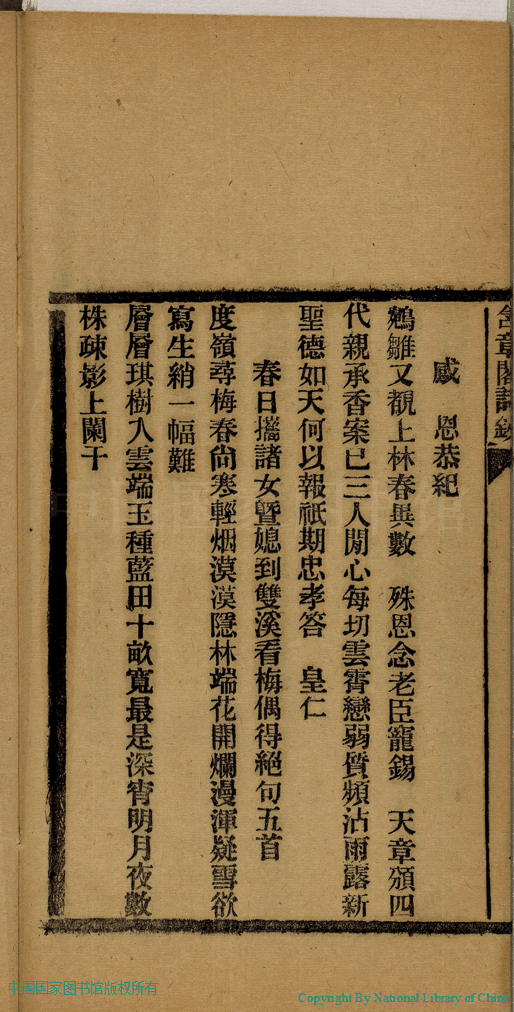 含章閣詩鈔
感　恩恭紀
鵷雛又覩上林春異數　殊恩念老臣寵錫　天章頒四
代親承香案已三人閒心每切雲霄戀弱質頻沾雨露新
聖德如天何以報祇期忠孝答　皇仁
春日攜諸女曁媳到雙溪看梅偶得絕句五首
度嶺尋梅春尚寒輕烟漠漠隱林端花開爛漫渾疑雪欲
寫生綃一幅難
層層琪樹入雲端玉種藍田十畝寬最是深宵明月夜數
株疎影上闌干
中国国家图书馆
中国国家图书馆版权所有
Copyright By National Library of China